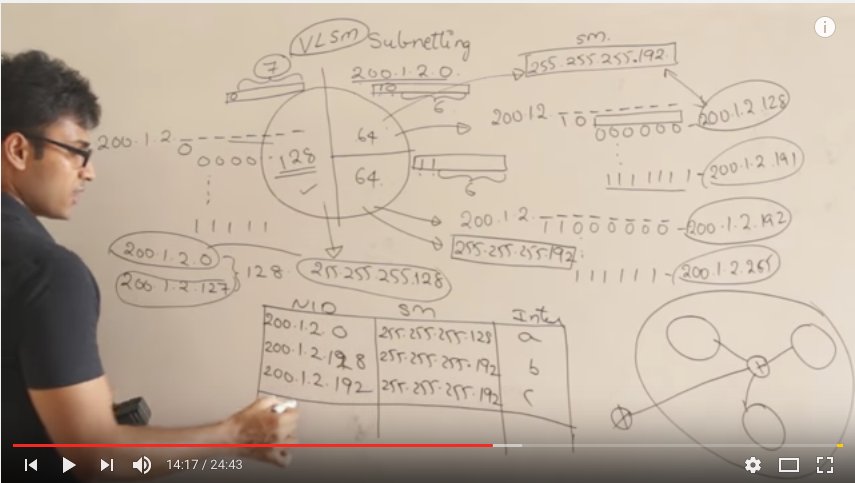 VLSM Subnetting
7
200.1.2.0.
10
6
SM.
255.255.255.192.
200.1.2 _ _ _ _ _ _ _ _
0
0000
11111
128
64
64
200.12 1 0 _ _ _ _ _ _
000000 - 200.1.2.128
1111111 - 200.1.2.191
11
6
200.1.2. 11000000 - 200.1.2.192
255.255.255.192
111111 - 200.1.2.255
200.1.2.0
200.1.2.127
128.
255.255.255.128
NID SM Inter
200.1.2.0 255.255.255.128 a
200.1.2.128 255.255.255.192 b
200.1.2.192 255.255.255.192 c
14:17 / 24:43